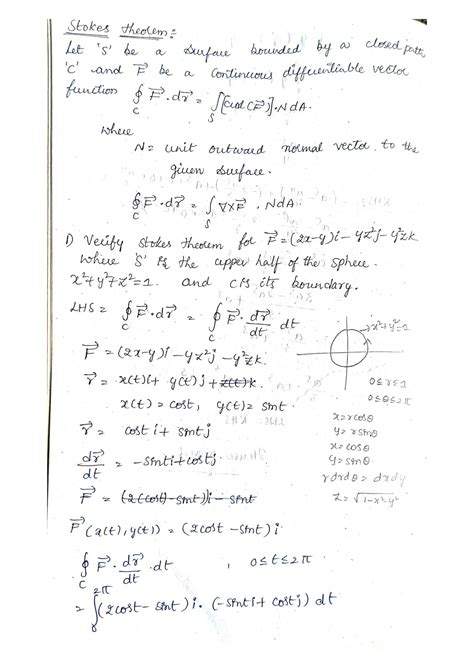 Stokes theorem:-
Let 'S' be a surface bounded by a closed path
'C' and F⃗ be a continuous differentiable vector
function ∮_C F⃗·dr⃗ = ∫_S [Curl(F⃗)]·N dA.
where
N = unit outward normal vector to the
given surface.
∮_C F⃗·dr⃗ = ∫_S ∇×F⃗ · N dA.
1) Verify stokes theorem for F⃗ = (2x-y)i - yz²j - y²zk
where 'S' is the upper half of the sphere
x²+y²+z²=1. and C is its boundary.
LHS = ∮_C F⃗·dr⃗ = ∮_C F⃗·dr⃗/dt dt
x²+y²=1
F⃗ = (2x-y)i - yz²j - y²zk.
r⃗ = x(t)i + y(t)j + z(t)k.
0≤r≤1
0≤θ≤2π
x(t) = cost, y(t) = sint
x=rcosθ
y=rsinθ
r⃗ = cost i + sint j
x=cosθ
y=sinθ
dr⃗/dt = -sint i + cost j
rdrdθ = dxdy
z = √1-x²-y²
F⃗ = (2(cost)-sint)i - sint
F⃗(x(t), y(t)) = (2cost - sint) i
∮_C F⃗·dr⃗/dt·dt , 0≤t≤2π
= ∫_0^2π (2cost - sint) i · (-sint i + cost j) dt